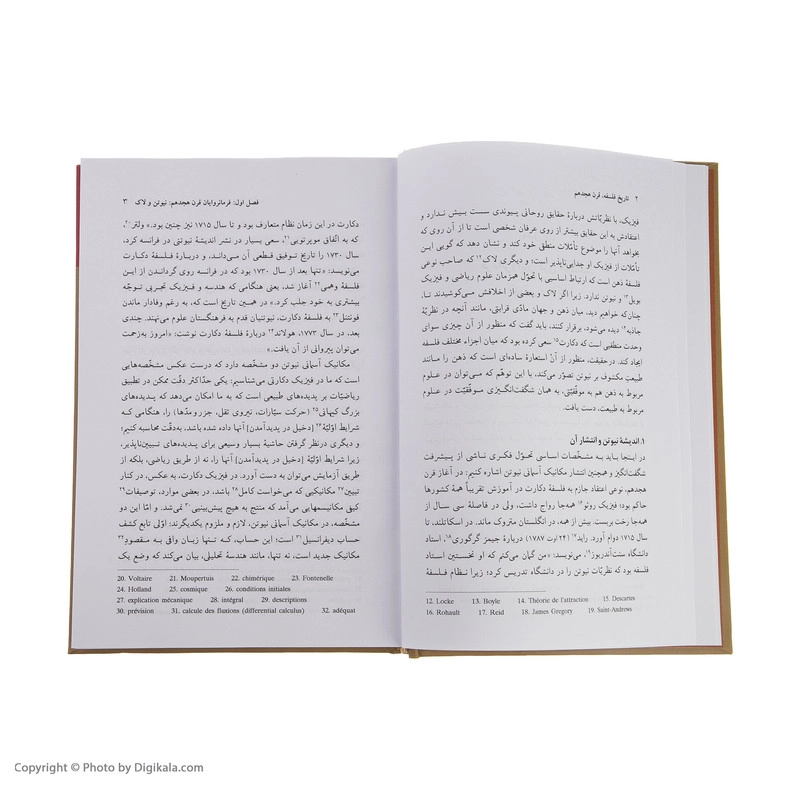 ۲ تاریخ فلسفه، قرن هجدهم
فیزیک، با نظریّاتش دربارهٔ حقایق روحانی پیوندی سست بیش ندارد و
اعتقادش به این حقایق بیشتر از روی عرفان شخصی است تا از آن روی که
بخواهد آنها را موضوع تأمّلات منطق خود کند و نشان دهد که گویی این
تأمّلات از فیزیک او جدایی‌ناپذیر است؛ و دیگری لاک۱۲ که صاحب نوعی
فلسفهٔ ذهن است که ارتباط اساسیی با تحوّل همزمان علوم ریاضی و فیزیک
بویل۱۳ و نیوتن ندارد. زیرا اگر لاک و بعضی از اخلافش می‌کوشیدند تا،
چنان‌که خواهیم دید، میان ذهن و جهان مادّی قرابتی، مانند آنچه در نظریّهٔ
جاذبه۱۴ دیده می‌شود، برقرار کنند، باید گفت که منظور از آن چیزی سوای
وحدت منطقیی است که دکارت۱۵ سعی کرده بود که میان اجزاء مختلف فلسفه
ایجاد کند. درحقیقت، منظور از آن استعارهٔ ساده‌ای است که ذهن را مانند
طبیعتِ مکشوف بر نیوتن تصوّر می‌کند، با این توهّم که می‌توان در علوم
مربوط به ذهن هم به موفّقیّتی، به همان شگفت‌انگیزی موفّقیّت در علوم
مربوط به طبیعت، دست یافت.
۱. اندیشهٔ نیوتن و انتشار آن
در اینجا باید به مشخّصات اساسی تحوّل فکری ناشی از پیشرفت
شگفت‌انگیز و همچنین انتشار مکانیک آسمانی نیوتن اشاره کنیم: در آغاز قرن
هجدهم، نوعی اعتقاد جازم به فلسفهٔ دکارت در آموزش تقریباً همهٔ کشورها
حاکم بود؛ فیزیک روئو۱۶ همه‌جا رواج داشت، ولی در فاصلهٔ سی سال از
همه‌جا رخت بربست. بیش از همه، در انگلستان متروک ماند. در اسکاتلند، تا
سال ۱۷۱۵ دوام آورد. راید۱۷ (۲۴ اوت ۱۷۸۷) دربارهٔ جیمز گرگوری۱۸، استاد
دانشگاه سنت‌آندریوز۱۹، می‌نویسد: «من گمان می‌کنم که او نخستین استاد
فلسفه بود که نظریّات نیوتن را در دانشگاه تدریس کرد؛ زیرا نظام فلسفهٔ
12. Locke 13. Boyle 14. Théorie de l'attraction 15. Descartes
16. Rohault 17. Reid 18. James Gregory 19. Saint-Andrews
فصل اول: فرمانروایان قرن هجدهم: نیوتن و لاک ۳
دکارت در این زمان نظام متعارف بود و تا سال ۱۷۱۵ نیز چنین بود.» ولتر۲۰،
که به اتّفاق موپرتویی۲۱، سعی بسیار در نشر اندیشهٔ نیوتنی در فرانسه کرد،
سال ۱۷۳۰ را تاریخ توفیق قطعی آن می‌داند، و دربارهٔ فلسفهٔ دکارت
می‌نویسد: «تنها بعد از سال ۱۷۳۰ بود که در فرانسه روی گرداندن از این
فلسفهٔ وهمی۲۲ آغاز شد، یعنی هنگامی که هندسه و فیزیک تجربی توجّه
بیشتری به خود جلب کرد.» در همین تاریخ است که، به رغم وفادار ماندن
فونتنل۲۳ به فلسفهٔ دکارت، نیوتنیان قدم به فرهنگستان علوم می‌نهند. چندی
بعد، در سال ۱۷۷۳، هولاند۲۴ دربارهٔ فلسفهٔ دکارت نوشت: «امروز به‌زحمت
می‌توان پیروانی از آن یافت.»
مکانیک آسمانی نیوتن دو مشخّصه دارد که درست عکس مشخّصه‌هایی
است که ما در فیزیک دکارت می‌شناسیم: یکی حدّاکثر دقّت ممکن در تطبیق
ریاضیّات بر پدیده‌های طبیعی است که به ما امکان می‌دهد که پدیده‌های
بزرگ کیهانی۲۵ (حرکت سیّارات، نیروی ثقل، جزرومدّها) را، هنگامی که
شرایط اوّلیّهٔ۲۶ [دخیل در پدیدآمدن] آنها داده شده باشد، به‌دقّت محاسبه کنیم؛
و دیگری درنظر گرفتن حاشیهٔ بسیار وسیعی برای پدیده‌های تبیین‌ناپذیر،
زیرا شرایط اوّلیّهٔ [دخیل در پدیدآمدن] آنها را، نه از طریق ریاضی، بلکه از
طریق آزمایش می‌توان به دست آورد. در فیزیک دکارت، به‌عکس، در کنار
تبیین۲۷ مکانیکیی که می‌خواست کامل۲۸ باشد، در بعضی موارد، توصیفات۲۹
کیفِ مکانیسمهایی می‌آمد که منتج به هیچ پیش‌بینیی۳۰ نمی‌شد. و امّا این دو
مشخّصه، در مکانیک آسمانی نیوتن، لازم و ملزوم یکدیگرند: اوّلی تابع کشف
حساب دیفرانسیل۳۱ است؛ این حساب، که تنها زبان وافی به مقصودِ۳۲
مکانیک جدید است، نه تنها، مانند هندسهٔ تحلیلی، بیان می‌کند که وضع یک
20. Voltaire 21. Moupertuis 22. chimérique 23. Fontenelle
24. Holland 25. cosmique 26. conditions initiales
27. explication mécanique 28. intégral 29. descriptions
30. prévision 31. calcule des fluxions (differential calculus) 32. adéquat
Copyright © Photo by Digikala.com